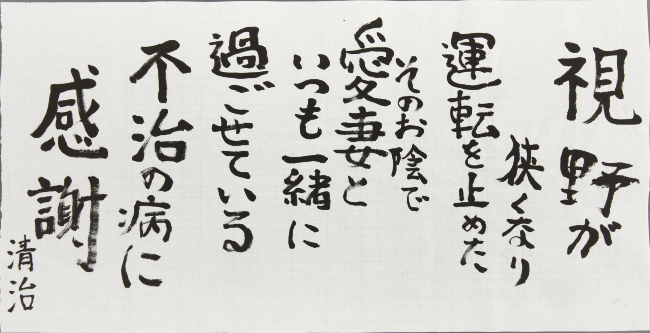 視野が
狭くなり
運転を止めた
そのお陰で
愛妻と
いつも一緒に
過ごせている
不治の病に
感謝
清治